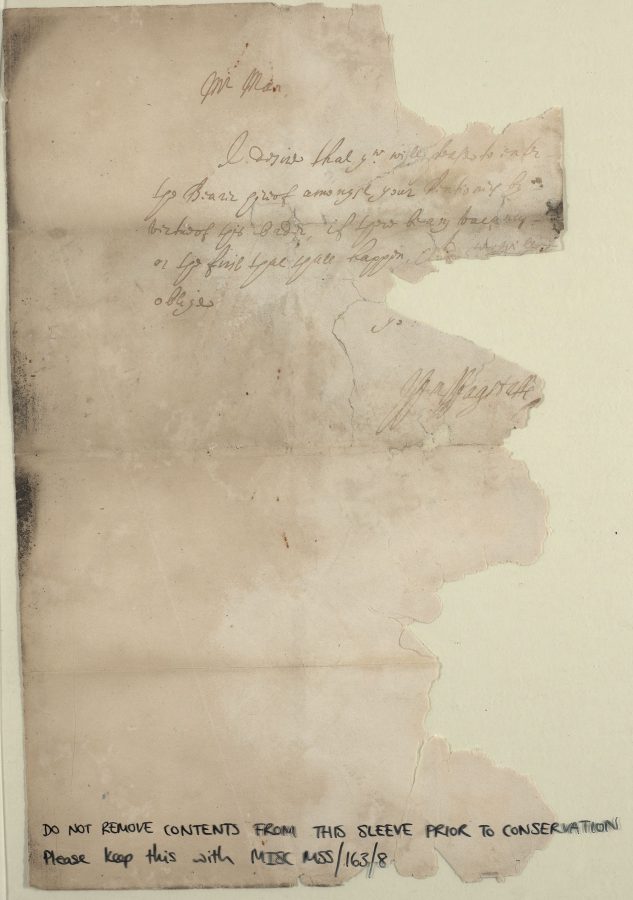 Mr Man
I desire that yr will please to enter
the Bearer hereof amongst your
virtue of this Order, if there be any vacancy
or the first that shall happen,
oblige
yo
Wagstaffe
DO NOT REMOVE CONTENTS FROM THIS SLEEVE PRIOR TO CONSERVATION
Please keep this with MISC MSS/163/8